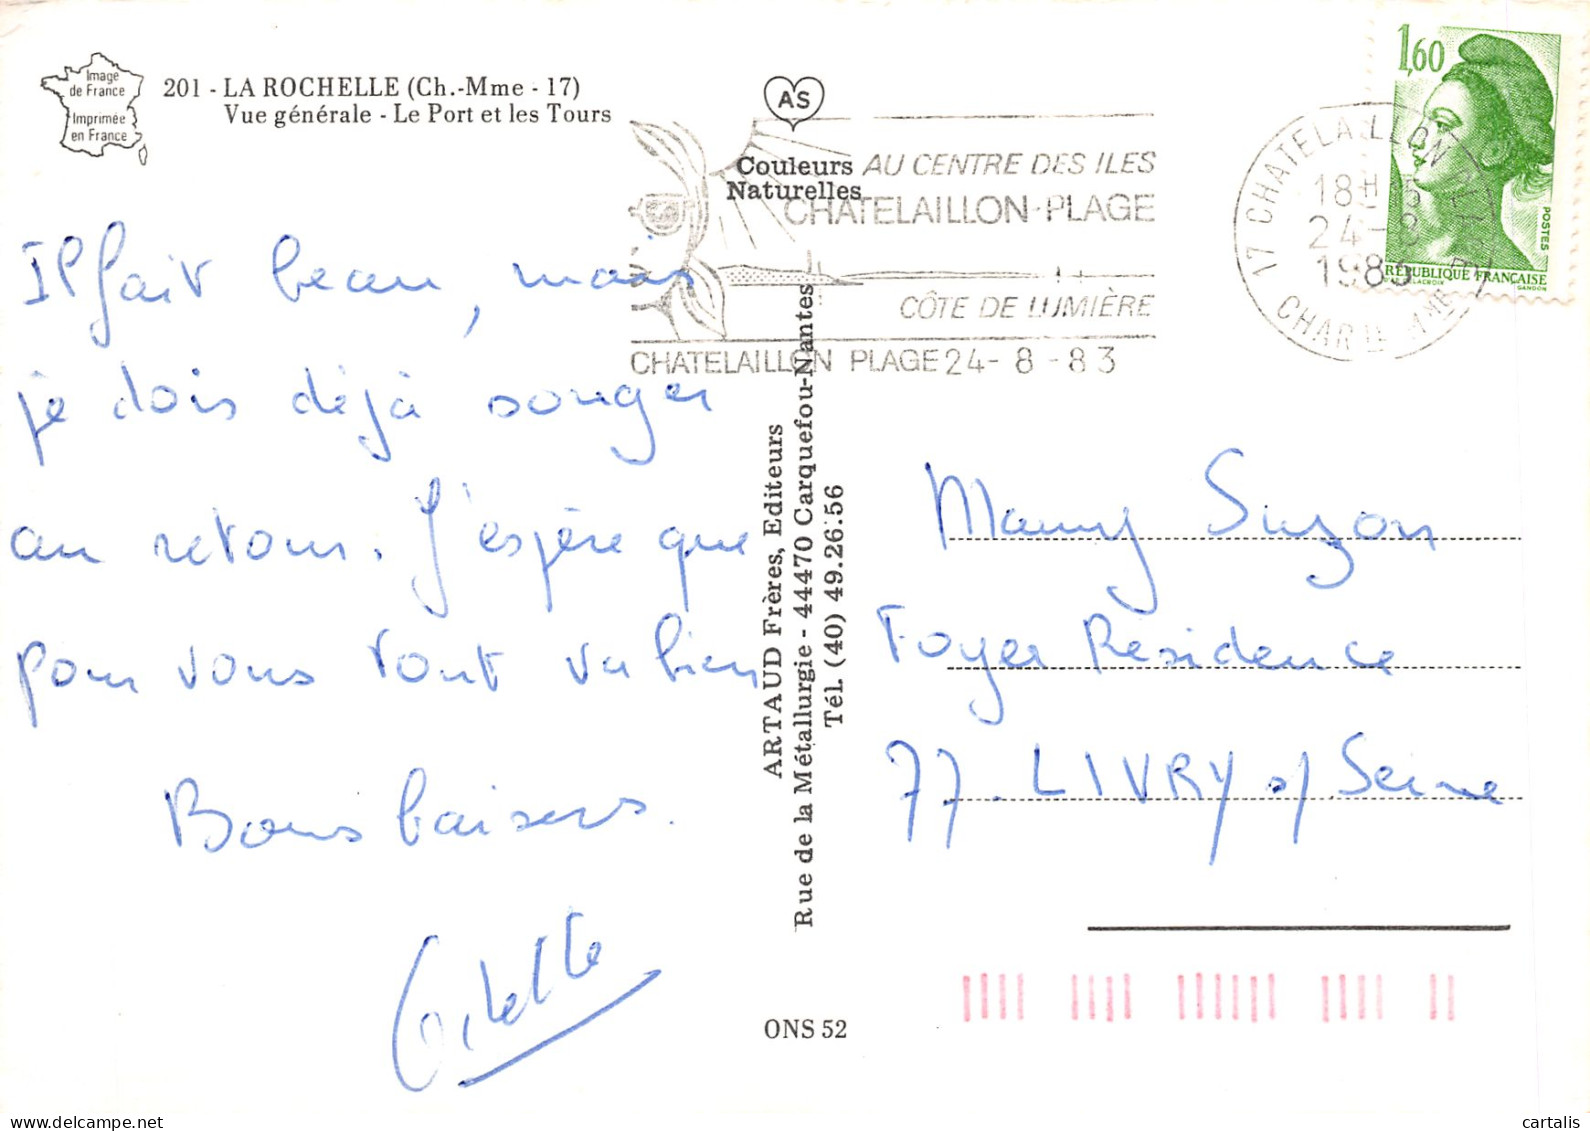 Image
de France
Imprimée
en France
201 - LA ROCHELLE (Ch.-Mme - 17)
Vue générale - Le Port et les Tours
AS
Couleurs
Naturelles
AU CENTRE DES ILES
CHATELAILLON-PLAGE
CÔTE DE LUMIÈRE
CHATELAILLON PLAGE 24-8-83
17 CHATELAILLON PLAGE
18H
24-8
1983
CHAR. MME
1,60
POSTES
RÉPUBLIQUE FRANÇAISE
DELACROIX GANDON
Il fait beau, mais
je dois déjà songer
au retour. J'espère que
pour vous tout va bien
Bons baisers.
ARTAUD Frères, Editeurs
Rue de la Métallurgie - 44470 Carquefou-Nantes
Tél. (40) 49.26.56
Mamy Suzon
Foyer Résidence
77. LIVRY s/ Seine
ONS 52
cartalis